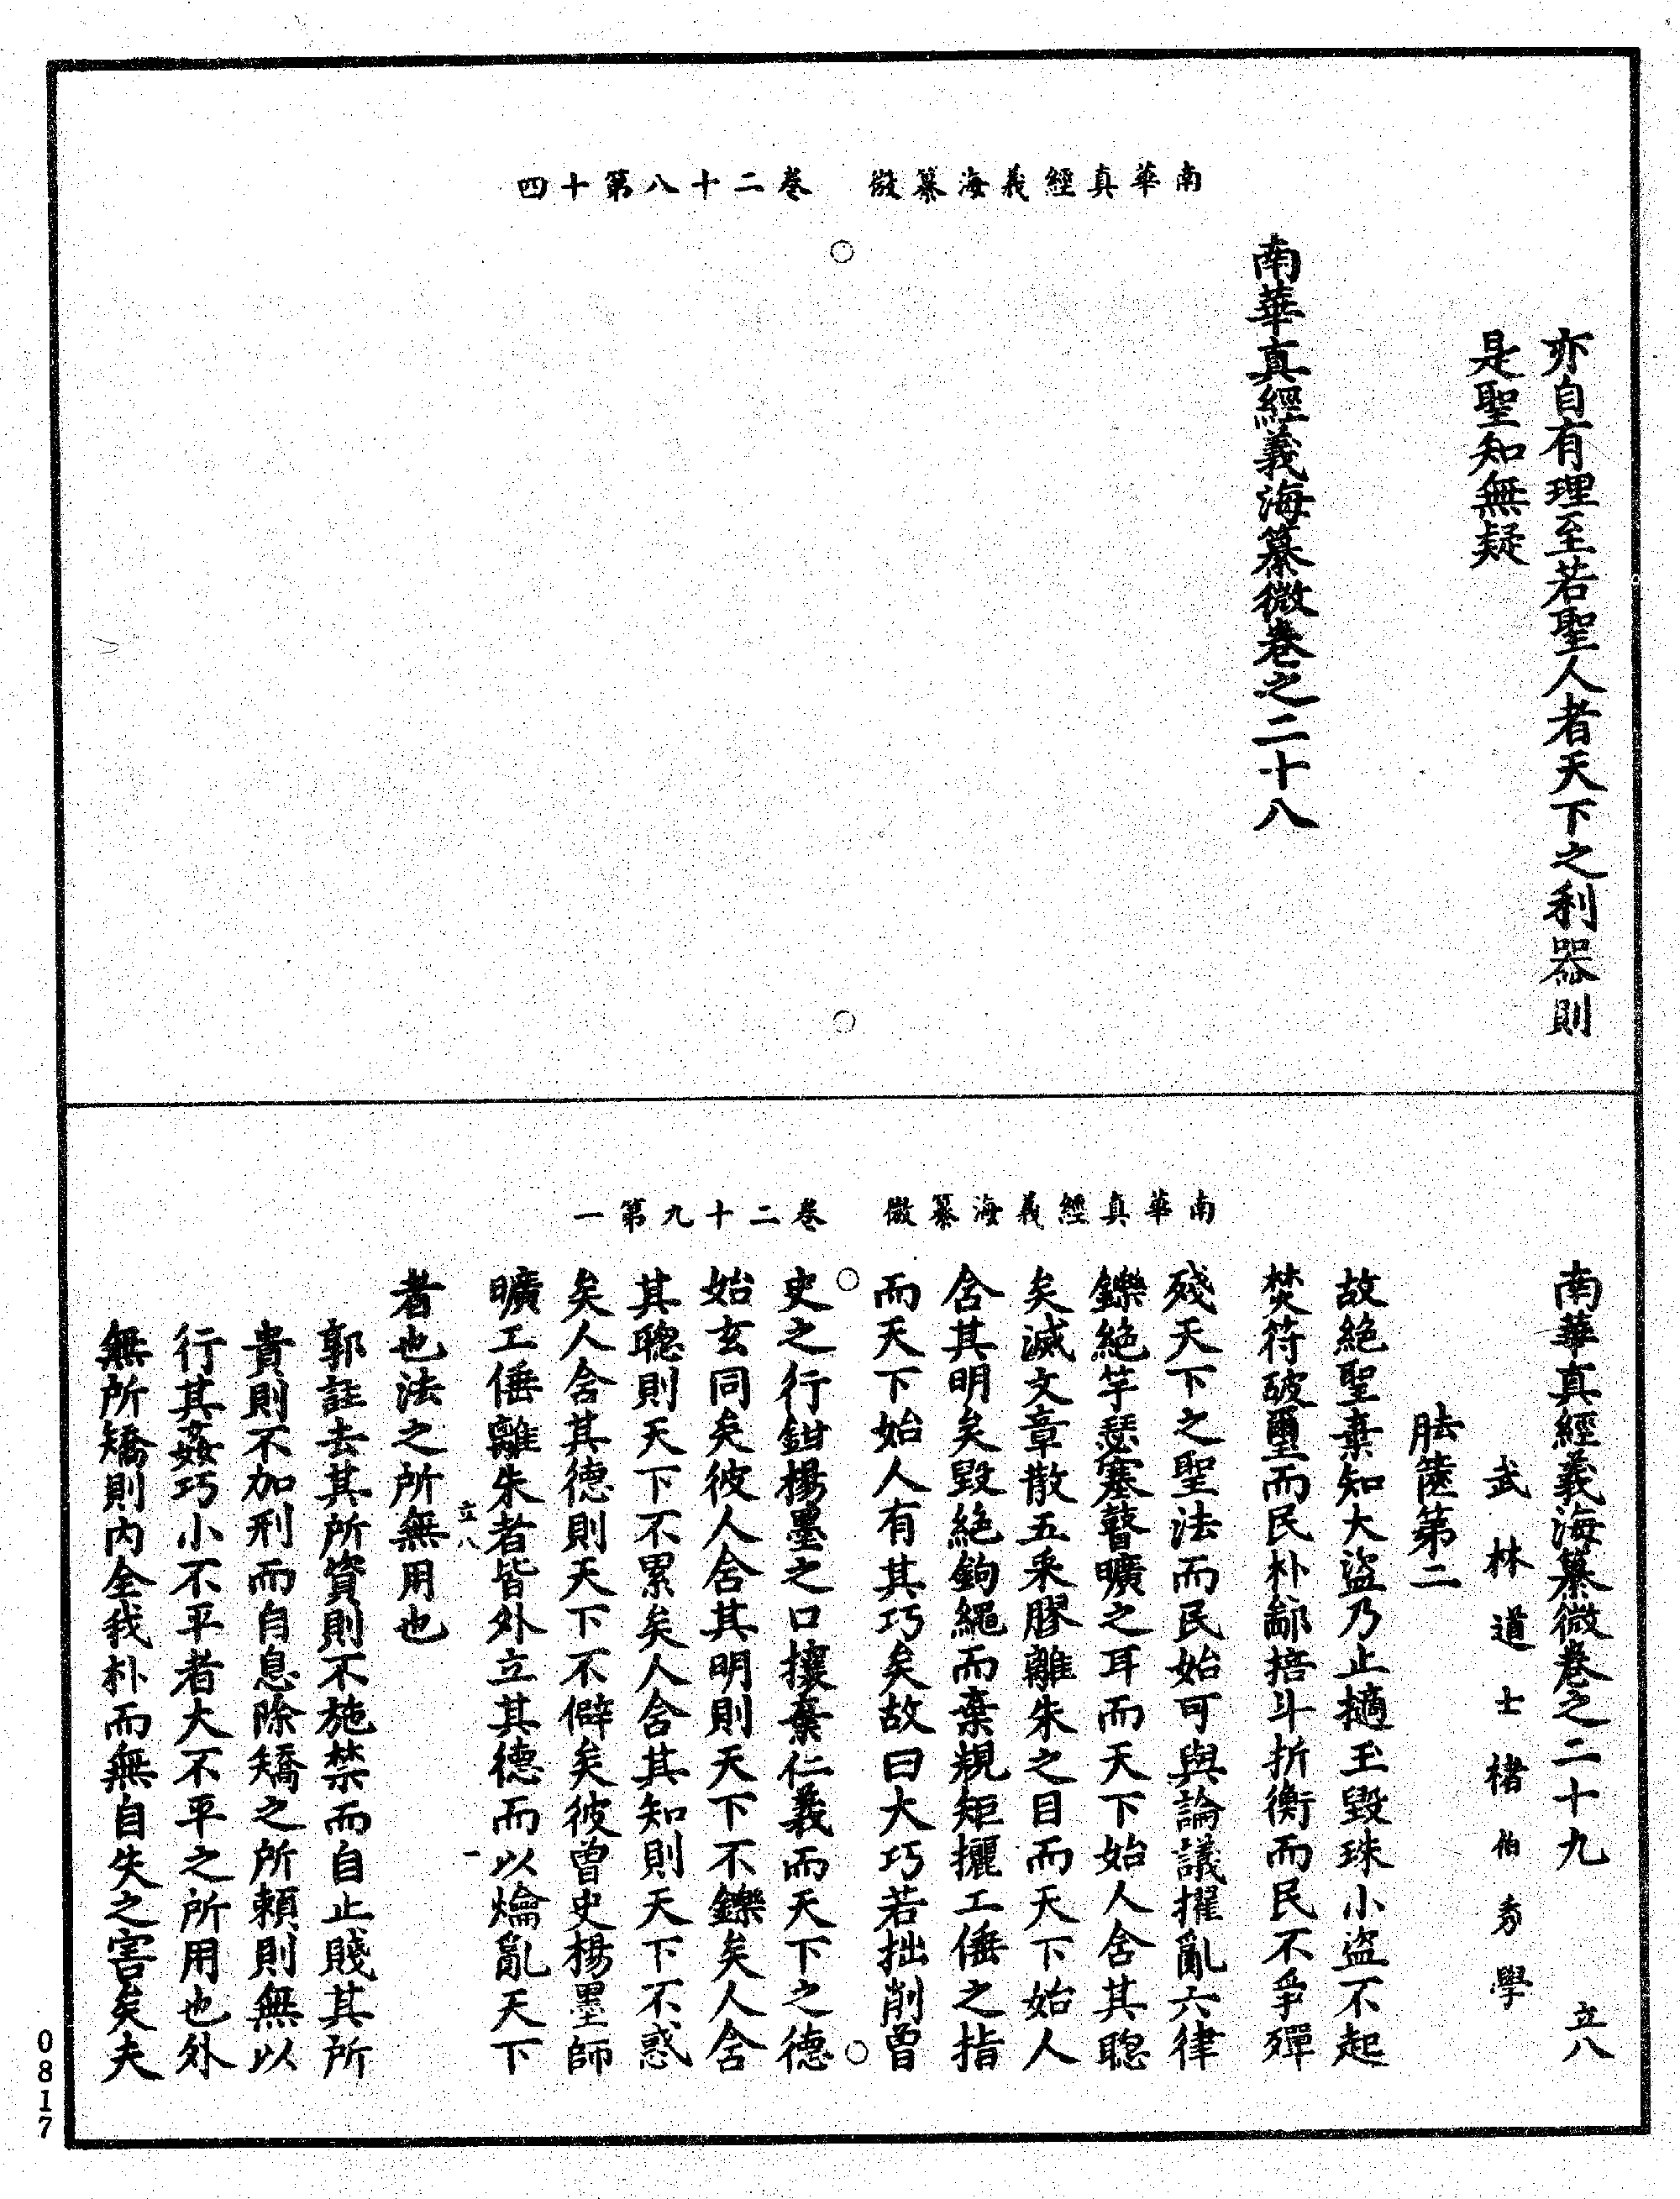 南華真經義海纂微　卷二十八第十四
亦自有理至若聖人者天下之利器則
是聖知無疑
南華真經義海纂微卷之二十八
南華真經義海纂微　卷二十九第一
南華真經義海纂微卷之二十九　立八
武林道士褚伯秀學
胠篋第二
故絶聖棄知大盜乃止擿玉毀珠小盜不起
焚符破璽而民朴鄙掊斗折衡而民不爭殫
殘天下之聖法而民始可與論議擢亂六律
鑠絶竽瑟塞瞽曠之耳而天下始人含其聰
矣滅文章散五采膠離朱之目而天下始人
含其明矣毀絶鉤繩而棄規矩攦工倕之指
而天下始人有其巧矣故曰大巧若拙削曾
史之行鉗楊墨之口攘棄仁義而天下之德
始玄同矣彼人含其明則天下不鑠矣人含
其聰則天下不累矣人含其知則天下不惑
矣人含其德則天下不僻矣彼曾史楊墨師
曠工倕離朱者皆外立其德而以爚亂天下
者也法之所無用也
立八　一
郭註去其所資則不施禁而自止賤其所
貴則不加刑而自息除矯之所賴則無以
行其姦巧小不平者大不平之所用也外
無所矯則內全我朴而無自失之害矣夫
0817